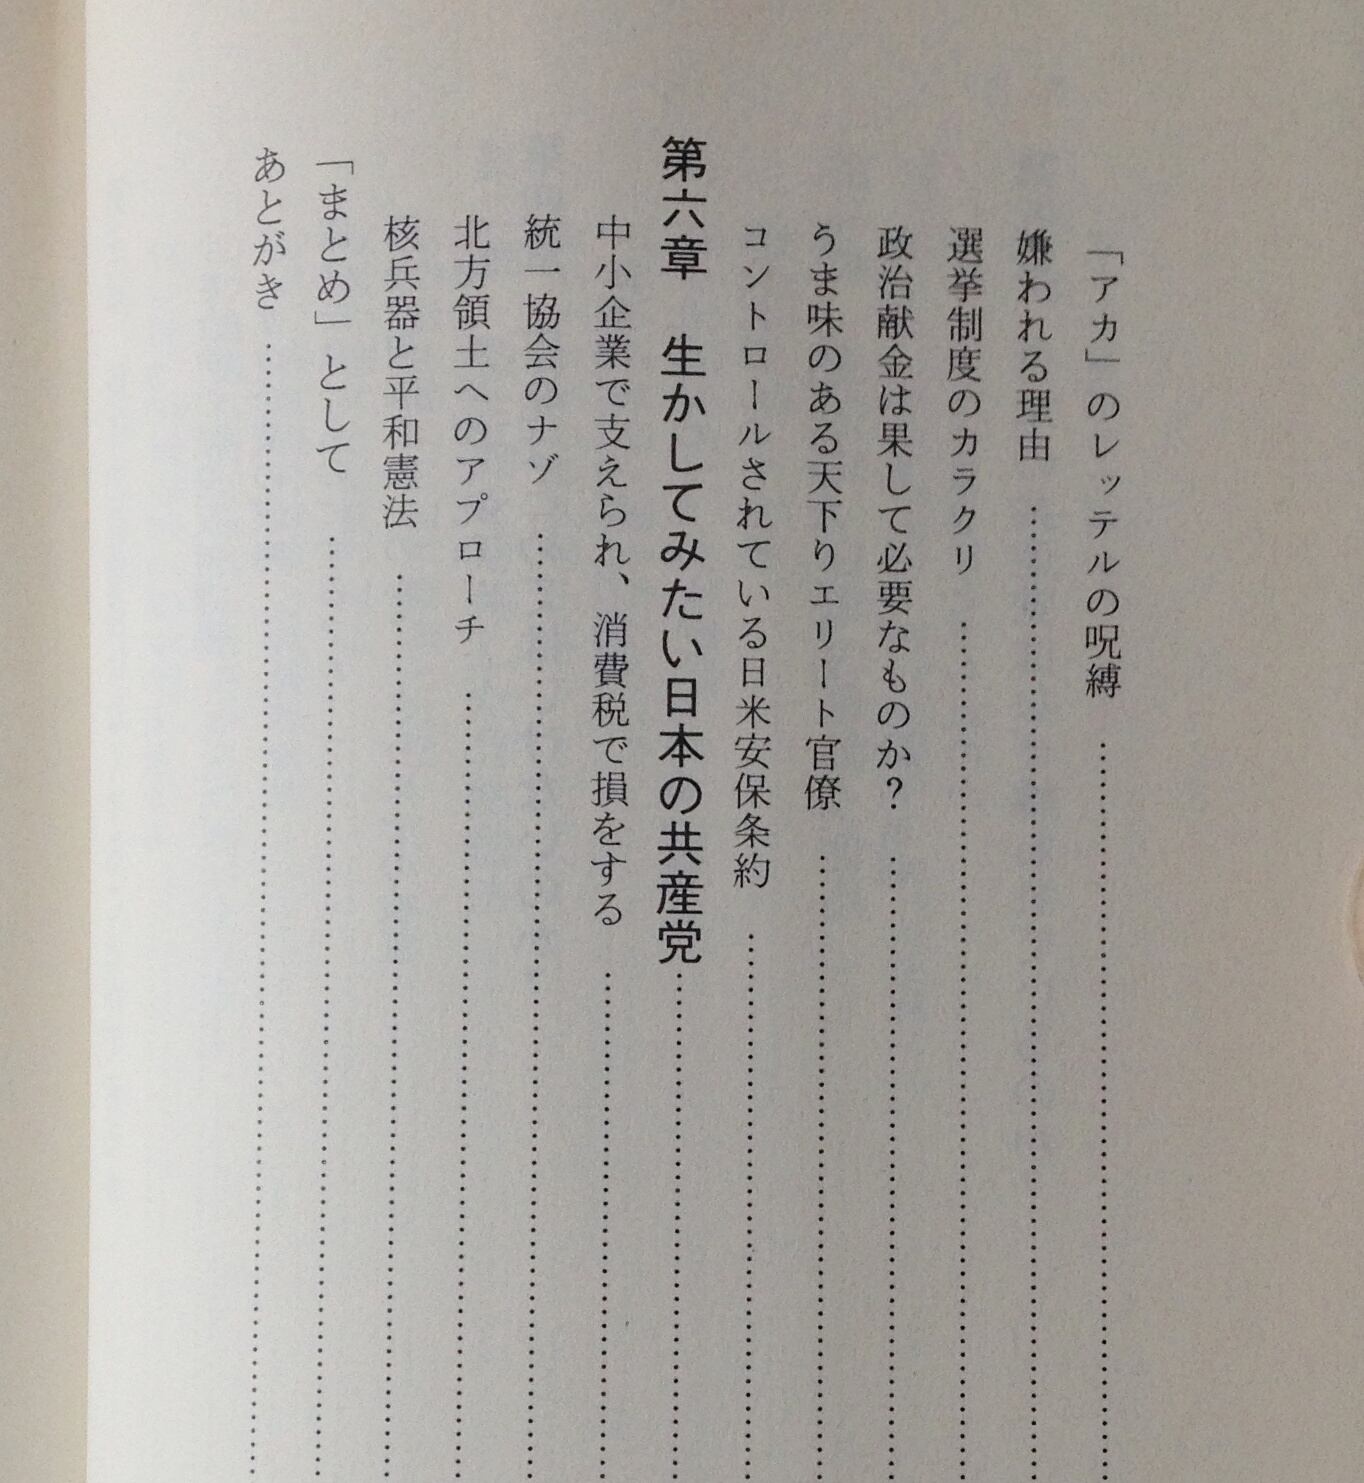 「アカ」のレッテルの呪縛
嫌われる理由
選挙制度のカラクリ
政治献金は果して必要なものか？
うま味のある天下りエリート官僚
コントロールされている日米安保条約
第六章　生かしてみたい日本の共産党
中小企業で支えられ、消費税で損をする
統一協会のナゾ
北方領土へのアプローチ
核兵器と平和憲法
「まとめ」として
あとがき